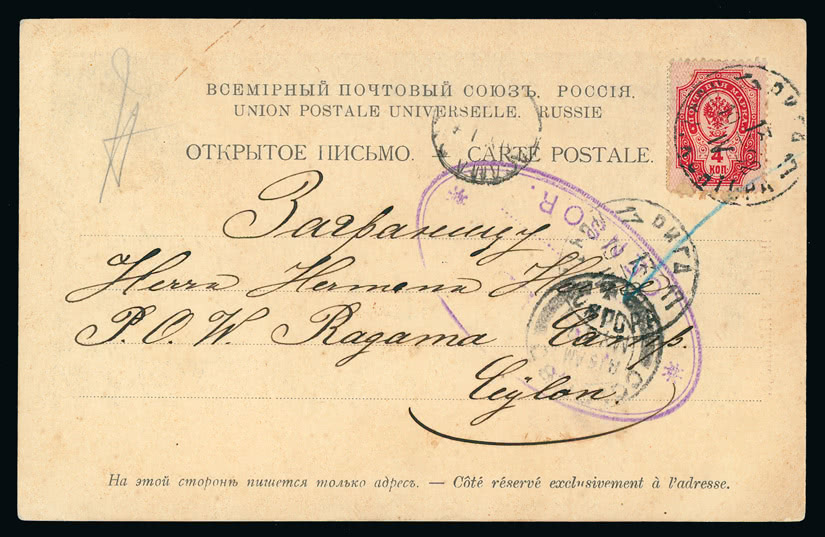 ВСЕМІРНЫЙ ПОЧТОВЫЙ СОЮЗЪ. РОССІЯ.
UNION POSTALE UNIVERSELLE. RUSSIE
ОТКРЫТОЕ ПИСЬМО. — CARTE POSTALE.
ПОЧТОВАЯ МАРКА
4
КОП
РИГА
Заграницу
РИГА
Herrn Hermann
P.O.W. Ragama Camp.
Ceylon.
На этой сторонѣ пишется только адресъ. — Côté réservé exclusivement à l'adresse.